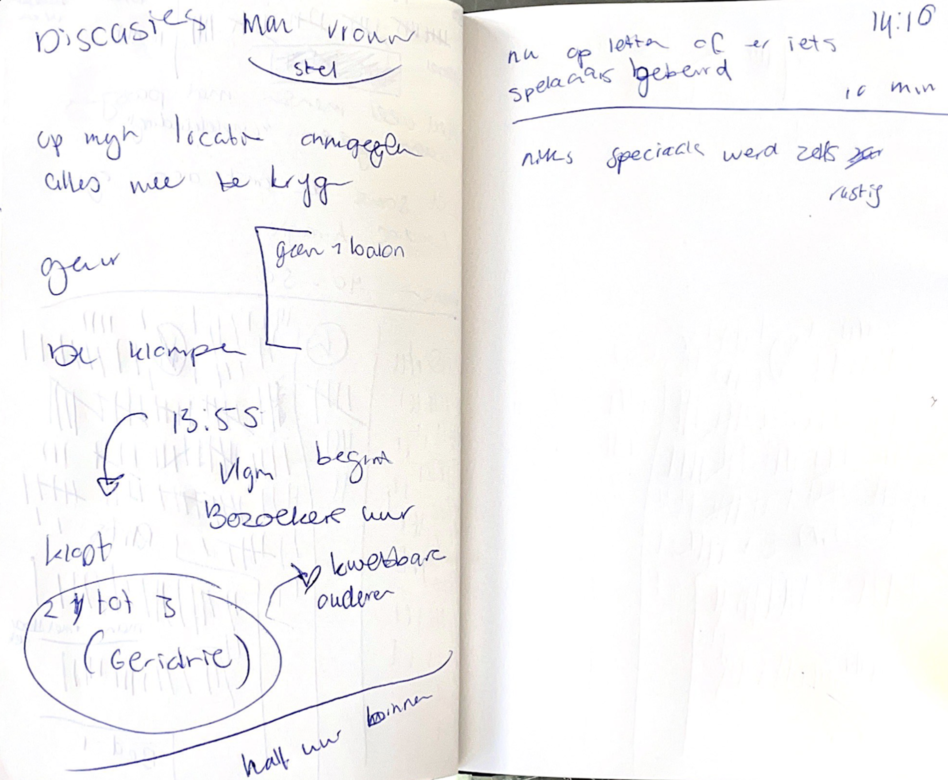 Discasies man vrouw
stel
op mijn locatie
alles mee te krijg
geur
geen 1 balon
De klompen
13:55
begint
Bezoekers uur
klopt
kwetbare
ouderen
2 tot 3
(Geriatrie)
half uur binnen
14:10
nu op letten of er iets
gebeurd
10 min
niks speciaals werd zelfs
rustig